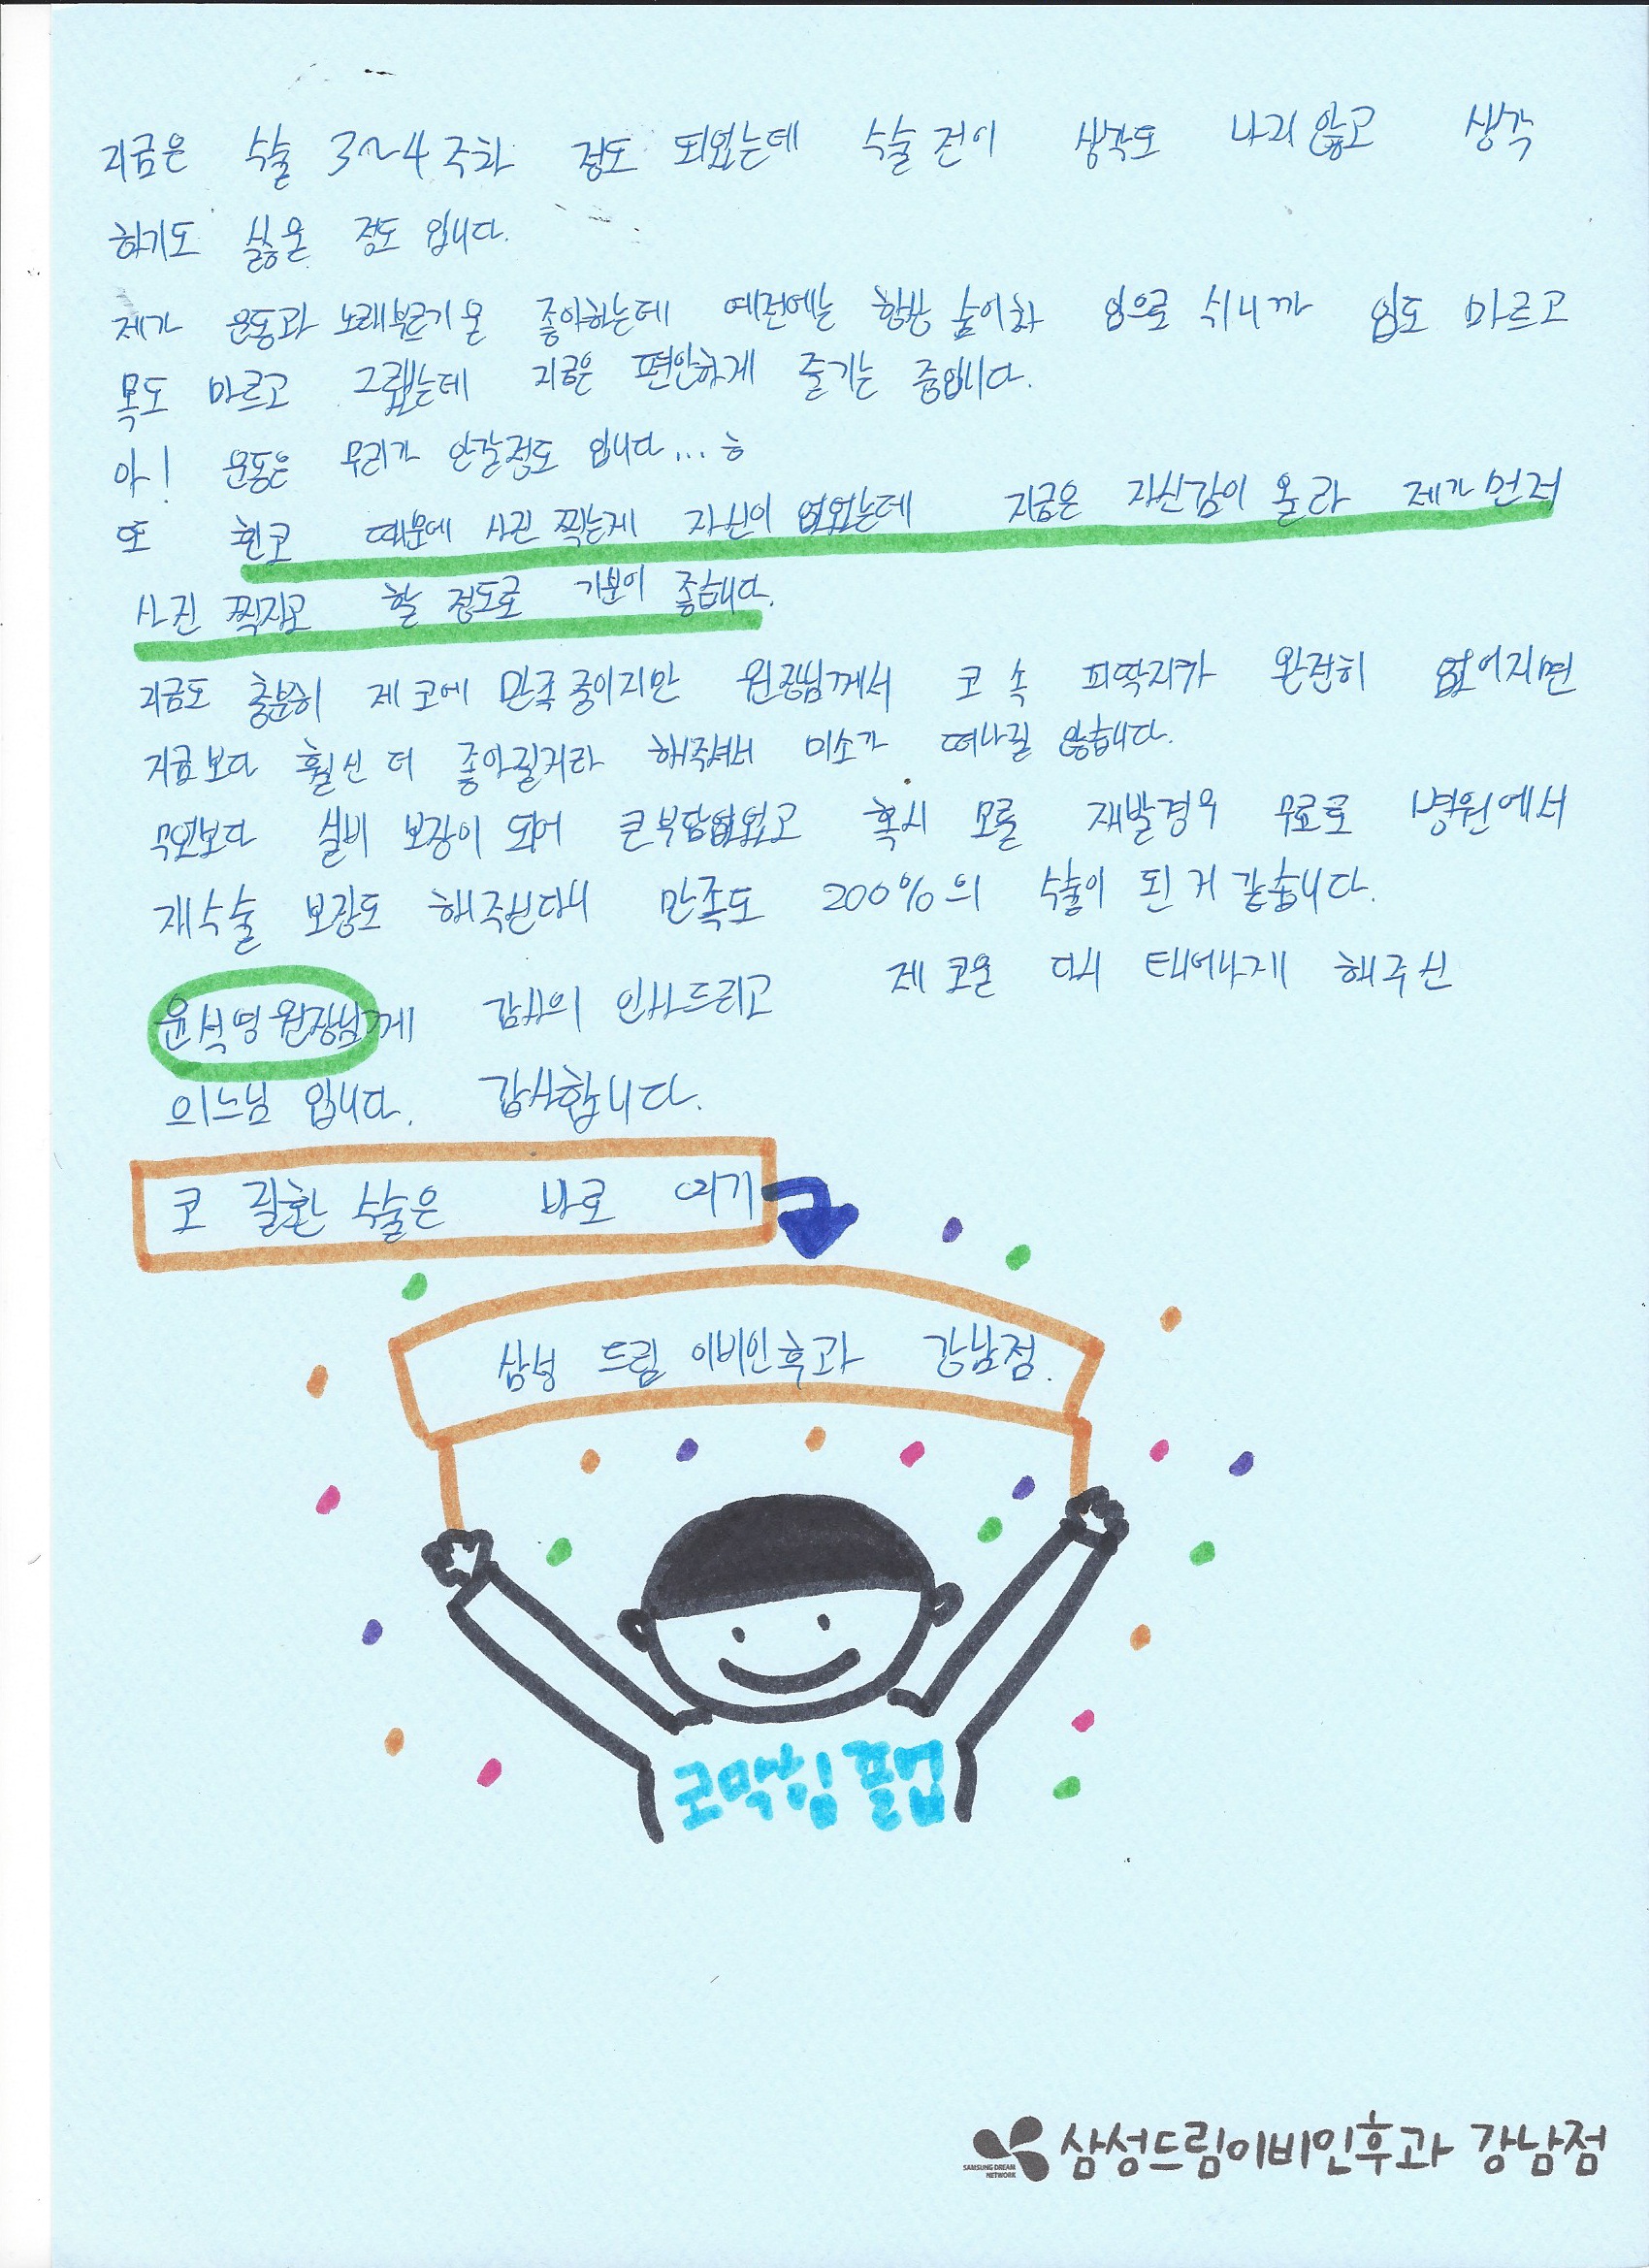 지금은 수술 3~4주차 정도 되었는데 수술전이 생각도 나지않고 생각
하기도 싫은 정도 입니다.
제가 운동과 노래부르기을 좋아하는데 예전에는 항상 숨이차 입으로 쉬니까 입도 마르고
목도 마르고 그랬는데 지금은 편안하게 즐기는 중입니다.
아! 운동은 무리가 안갈정도 입니다...ㅎ
또 휜코 때문에 사진 찍는게 자신이 없었는데 지금은 자신감이 올라 제가먼저
사진 찍자고 할 정도로 기분이 좋습니다.
지금도 충분히 제 코에 만족중이지만 원장님께서 코 속 피딱지가 완전히 없어지면
지금보다 훨신 더 좋아질거라 해주셔서 미소가 떠나질 않습니다.
무엇보다 실비 보장이 되어 큰부담없었고 혹시 모를 재발경우 무료로 병원에서
재수술 보장도 해주신다니 만족도 200%의 수술이 된거 같습니다.
윤석영원장님께 감사의 인사드리고 제 코을 다시 태어나게 해주신
의느님 입니다. 감사합니다.
코 질환 수술은 바로 여기
삼성 드림 이비인후과 강남점.
코막힘 플업
SAMSUNG DREAM
NETWORK
삼성드림이비인후과 강남점